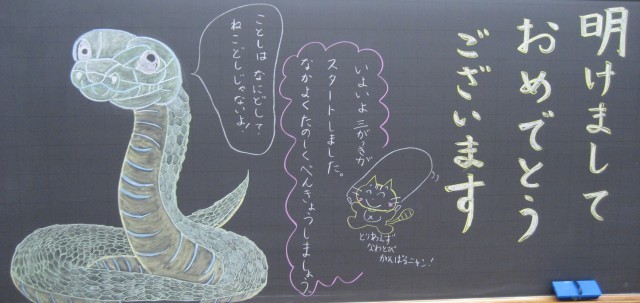 明けまして
おめでとう
ございます
いよいよ 三がっきが
スタートしました。
なかよくたのしくべんきょうしましょう。
とりあえず
なわとび
がんばるニャン!
ことしは なにどし?
ねこどしじゃないよ!